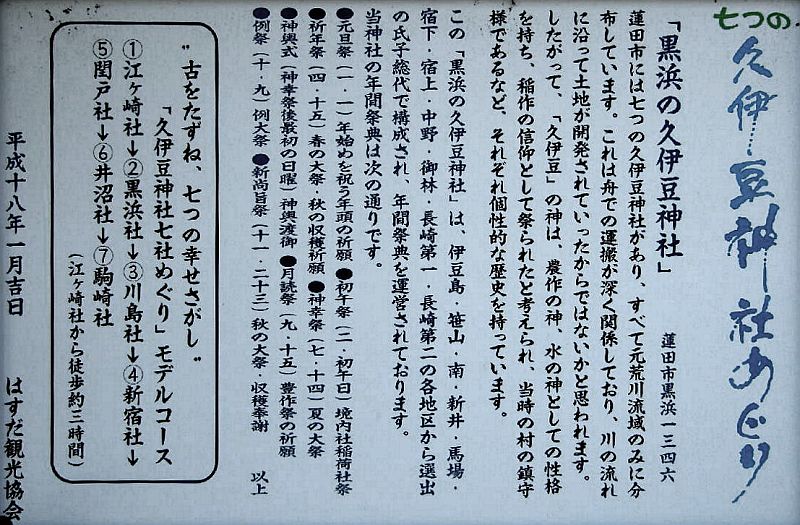 七つの
久伊豆神社めぐり
「黒浜の久伊豆神社」
蓮田市黒浜一三四六
蓮田市には七つの久伊豆神社があり、すべて元荒川流域のみに分
布しています。これは舟での運搬が深く関係しており、川の流れ
に沿って土地が開発されていったからではないかと思われます。
したがって、「久伊豆」の神は、農作の神、水の神としての性格
を持ち、稲作の信仰として祭られたと考えられ、当時の村の鎮守
様であるなど、それぞれ個性的な歴史を持っています。
この「黒浜の久伊豆神社」は、伊豆島・笹山・南・新井・馬場・
宿下・宿上・中野・御林・長崎第一・長崎第二の各地区から選出
の氏子総代で構成され、年間祭典を運営されております。
当神社の年間祭典は次の通りです。
●元旦祭（一・一）年始めを祝う年頭の祈願●初午祭（二・初午日）境内社稲荷社祭
●祈年祭（四・十五）春の大祭・秋の収穫祈願●神幸祭（七・十四）夏の大祭
●神輿式（神幸祭後最初の日曜）神輿渡御●月読祭（九・十五）豊作祭の祈願
●例祭（十・九）例大祭●新尚旨祭（十一・二十三）秋の大祭・収穫奉謝 以上
"古をたずね、七つの幸せさがし"
「久伊豆神社七社めぐり」モデルコース
①江ヶ崎社→②黒浜社→③川島社→④新宿社→
⑤閏戸社→⑥井沼社→⑦駒崎社
（江ヶ崎社から徒歩約三時間）
平成十八年一月吉日 はすだ観光協会